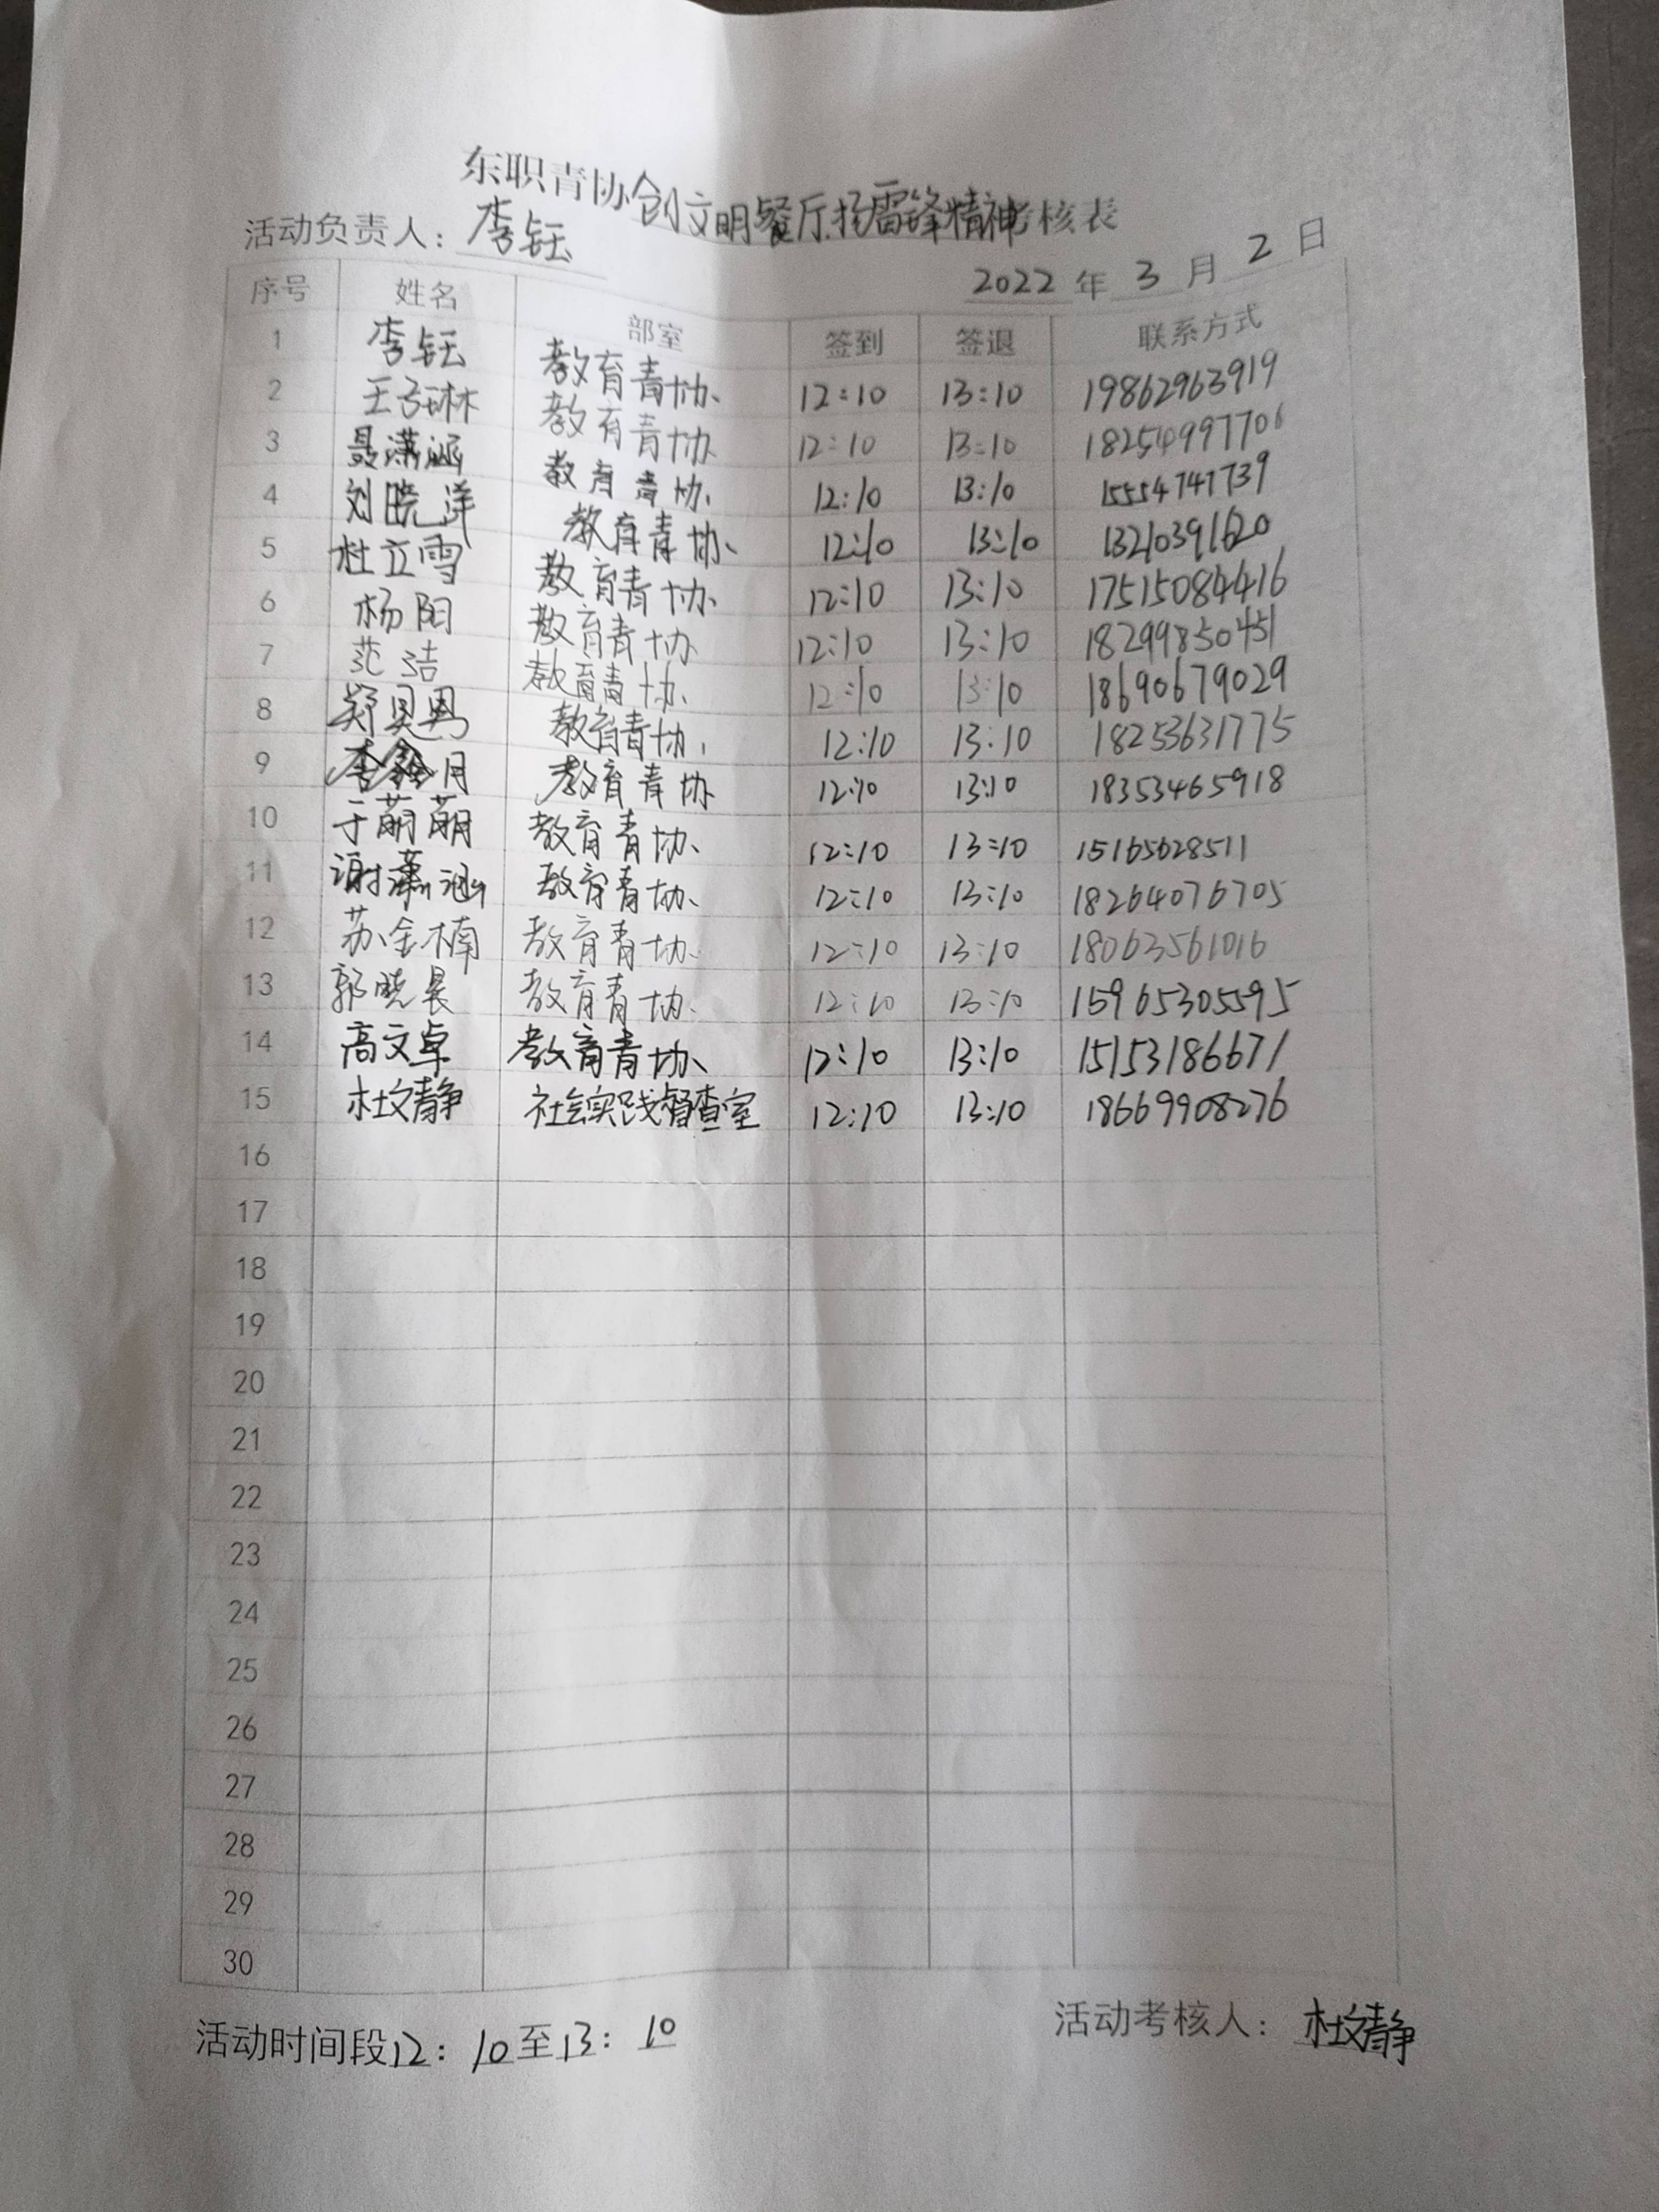 东职青协创文明餐厅.扬雷锋精神考核表
活动负责人：李钰
2022 年 3 月 2 日
序号 姓名 部室 签到 签退 联系方式
1 李钰 教育青协 12:10 13:10 19862963919
2 王子琳 教育青协 12:10 13:10 18254997706
3 聂潇涵 教育青协 12:10 13:10 15554747739
4 刘晓洋 教育青协 12:10 13:10 13210391620
5 杜立雪 教育青协 12:10 13:10 17515084416
6 杨阳 教育青协 12:10 13:10 18299850451
7 范洁 教育青协 12:10 13:10 18690679029
8 郑贝男 教育青协 12:10 13:10 18253631775
9 月 教育青协 12:10 13:10 18353465918
10 于萌萌 教育青协 12:10 13:10 15165628511
11 谢潇涵 教育青协 12:10 13:10 18264076705
12 苏金楠 教育青协 12:10 13:10 18063561016
13 郭晓晨 教育青协 12:10 13:10 15965305595
14 高文卓 教育青协 12:10 13:10 15153186671
15 杜文静 社会实践督查室 12:10 13:10 18669908276
16
17
18
19
20
21
22
23
24
25
26
27
28
29
30
活动时间段12：10至13：10 活动考核人：杜文静